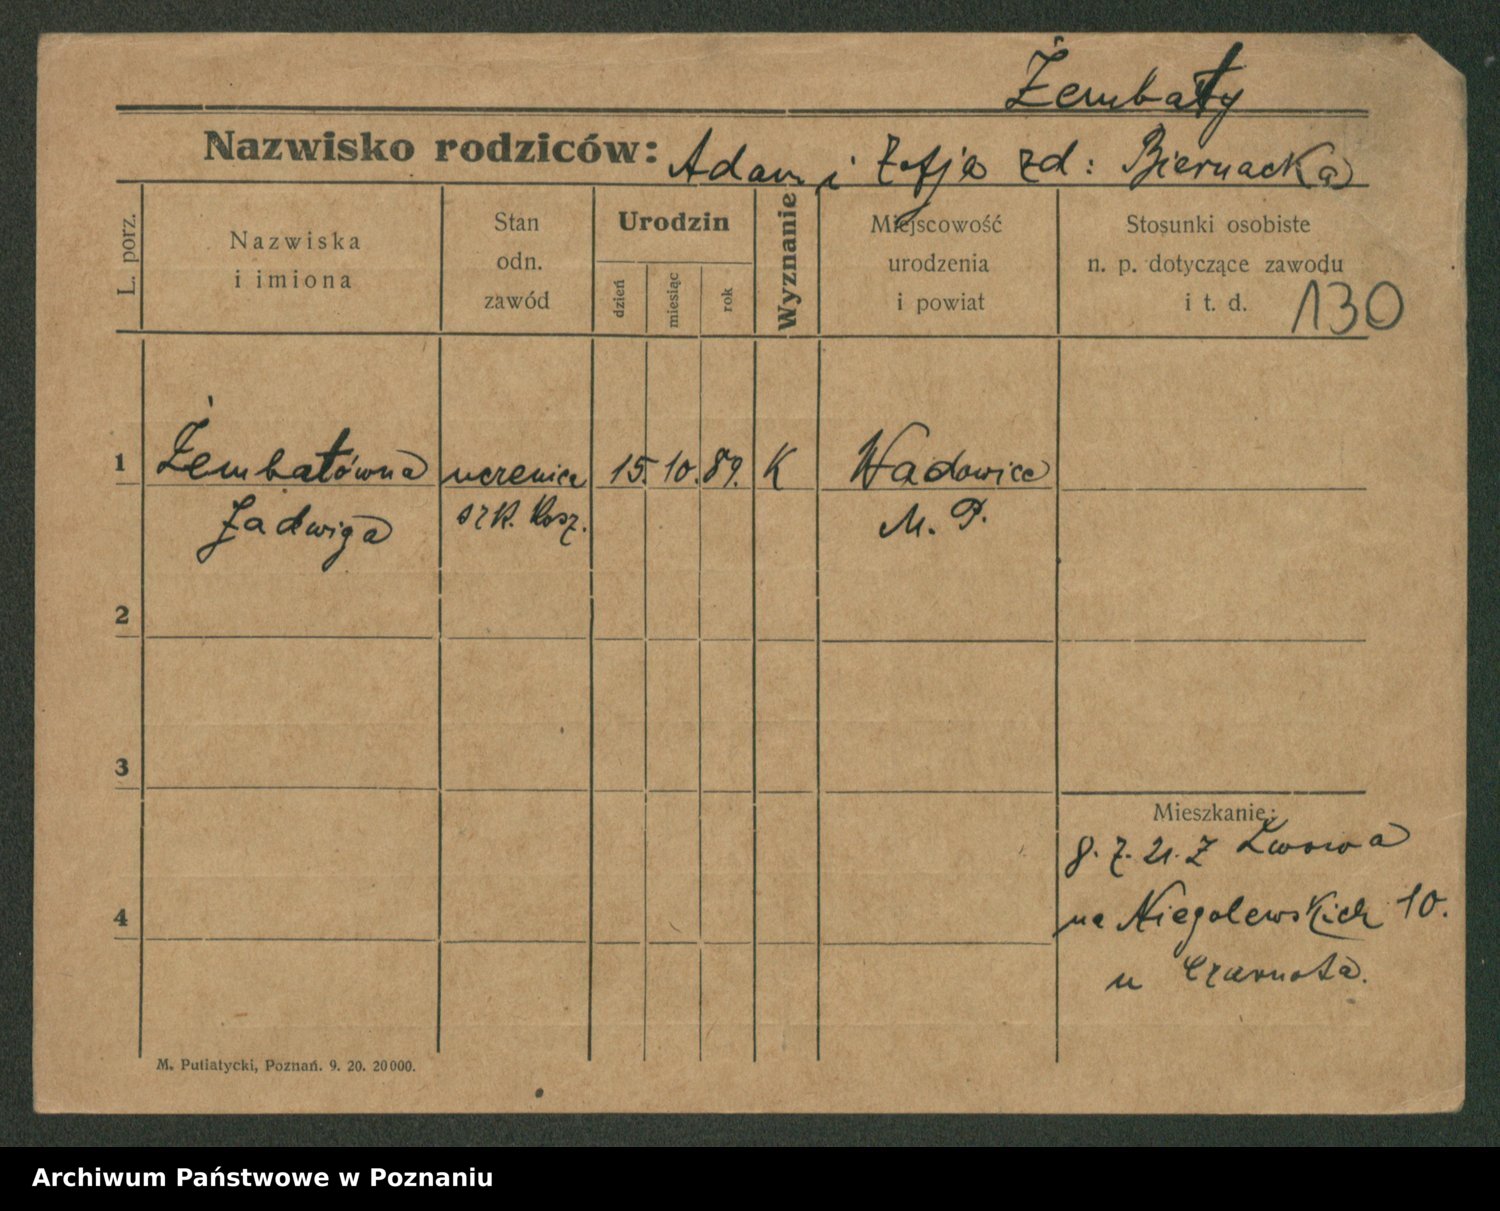 Żembaty
Nazwisko rodziców: Adam i Zofja zd: Biernacka
L. porz.
Nazwiska
i imiona
Stan
odn.
zawód
Urodzin
dzień
miesiąc
rok
Wyznanie
Miejscowość
urodzenia
i powiat
Stosunki osobiste
n. p. dotyczące zawodu
i t. d.
130
1 Żembatówna uczenica 15. 10. 89. K Wadowice
Jadwiga szk. kosz. M. P.
2
3
Mieszkanie:
8. 7. 21. Z Lwowa
4
na Niegolewskich 10.
u Czarnota.
M. Putiatycki, Poznań. 9. 20. 20000.
Archiwum Państwowe w Poznaniu